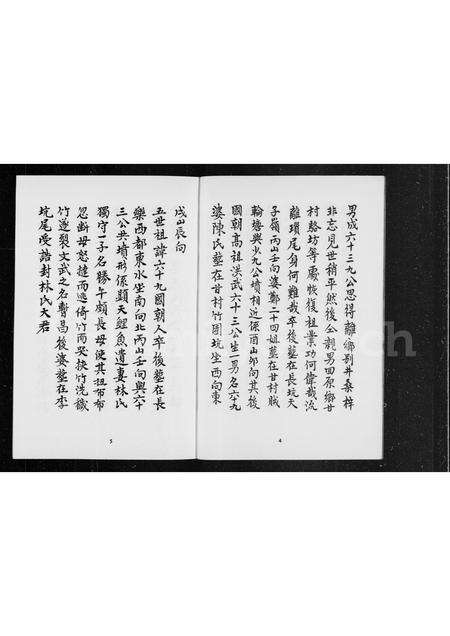 男成六十三九公思得離鄉別井桑梓
非忘見世稍平然後公親男回原鄉甘
村駱坊等處恢復祖業功何偉哉流
離瑣尾身何難哉卒後塟在長坑天
子嶺丙山壬向婆鄭二十四姐塟在甘村賊
輪塘與少九公墳相近係酉山卯向其後
國朝高祖洪武六十三公生一男名六十九
婆陳氏塟在甘村竹園坑坐西向東
4
戌山辰向
五世祖諱六十九國朝人卒後塟在長
樂西都東水坐南向北丙山壬向與六十
三公共墳形係顥天鯉魚遺妻林氏
獨守一子名勝午頗長母使其担布布
忽斷母怒撻而逃倚竹而哭扶竹洗鐵
竹遂製文武之名暫昌後婆塟在李
坑尾受誥封林氏大君
5